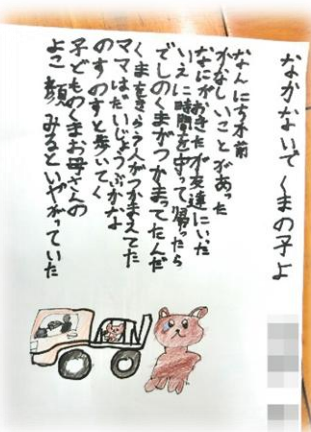 なかないで くまの子よ
なんにちか前
かなしいことがあった
なにがおきたか友達にいった
いえに時間を守って帰ったら
でしのくまがつかまってたんだ
くまをきらう人がつかまえてた
ママはだいじょうぶかな
のすのすと歩いてく
子どものくまお母さんの
よこ顔みるといやがっていた